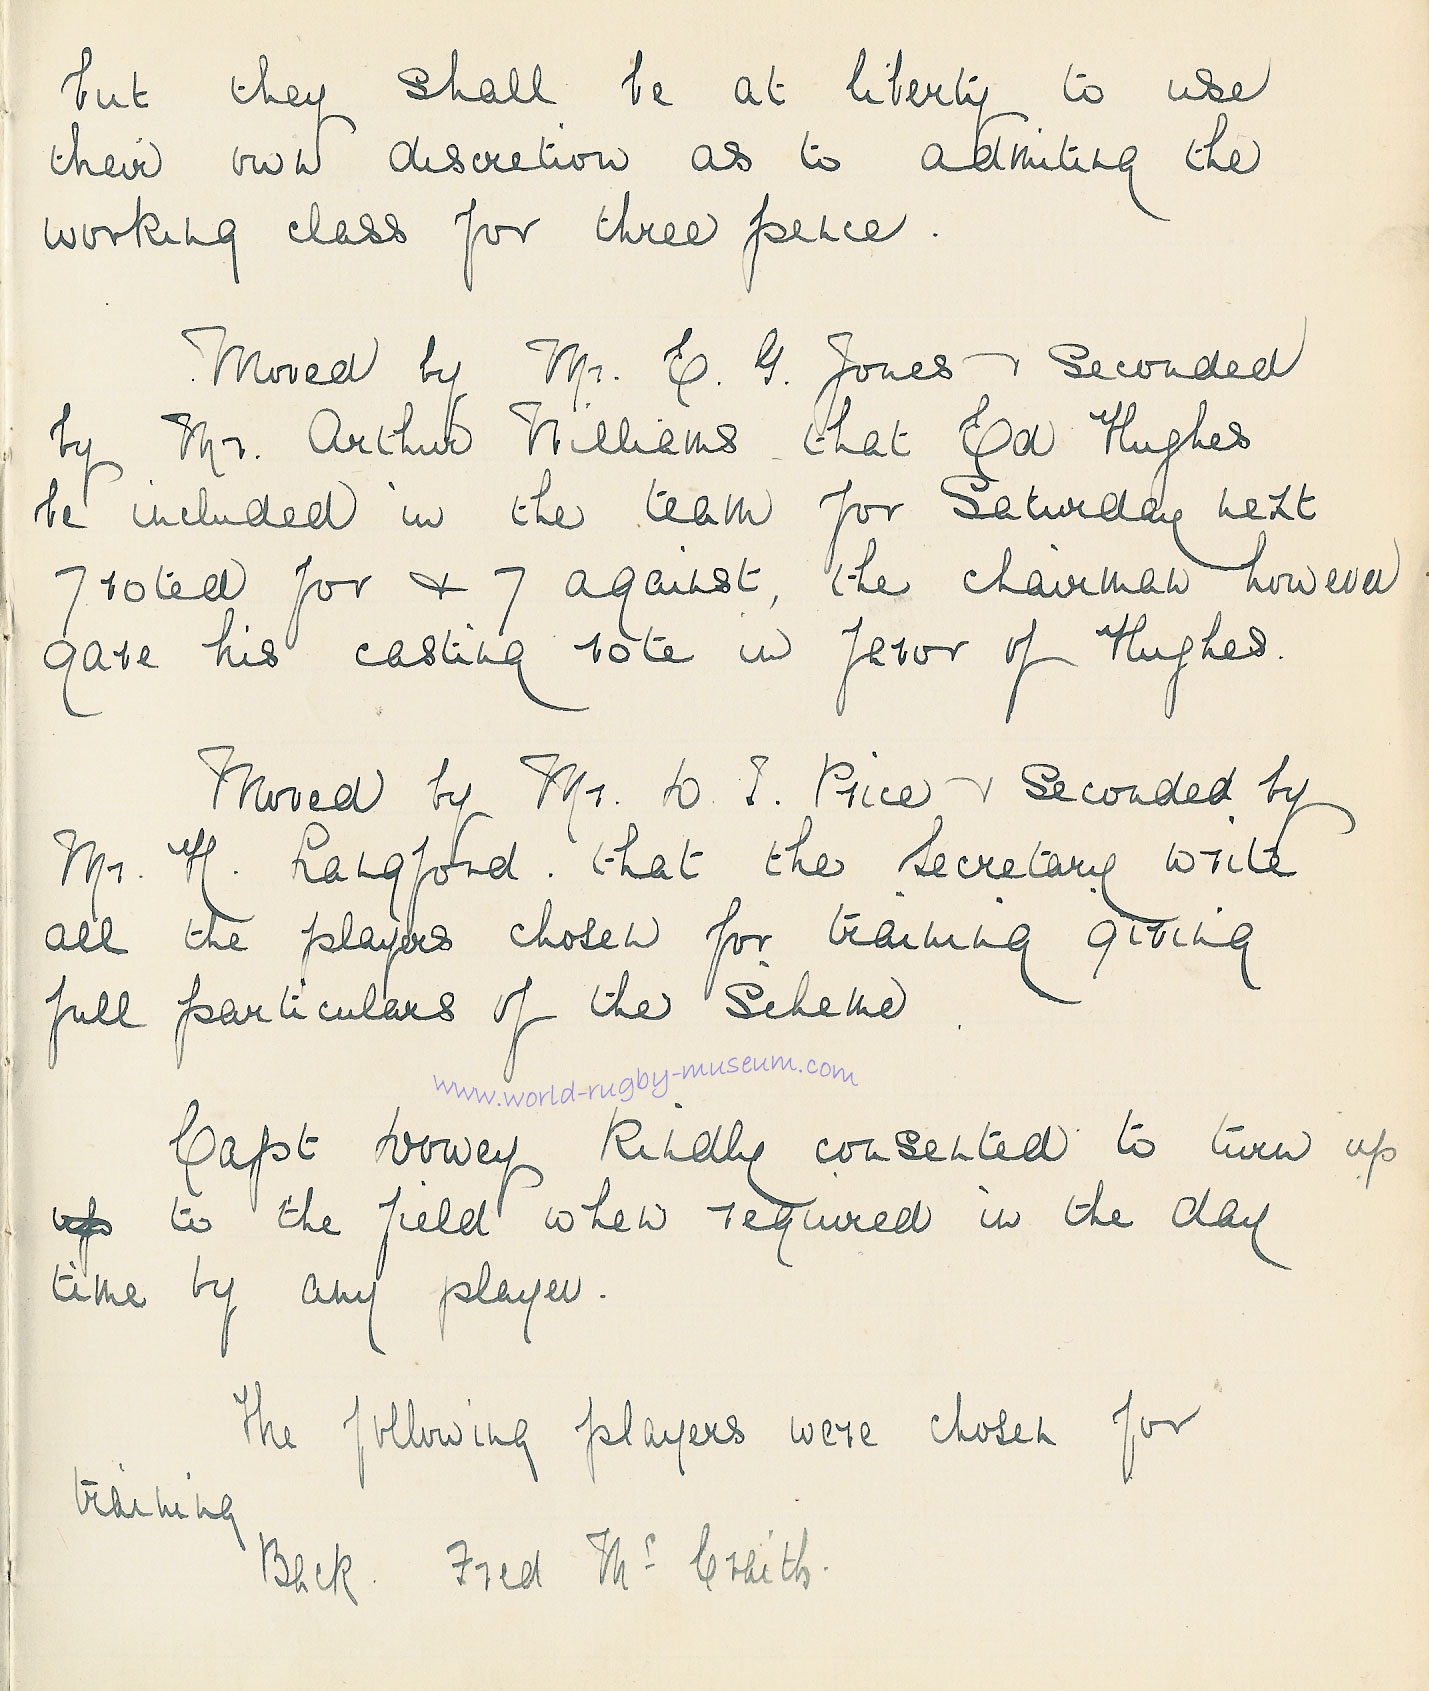 but they shall be at liberty to use
their own discretion as to admiting the
working class for three pence.
Moved by Mr. E. G. Jones & Seconded
by Mr. Arthur Williams that Ed Hughes
be included in the team for Saturday next
7 voted for & 7 against, the chairman however
gave his casting vote in favor of Hughes.
Moved by Mr. D. I. Price & Seconded by
Mr. H. Langford. that the Secretary write
all the players chosen for training giving
full particulars of the Scheme.
www.world-rugby-museum.com
Capt kindly consented to turn up
up to the field when required in the day
time by any player.
The following players were chosen for
training
Back. Fred Mc Craith.